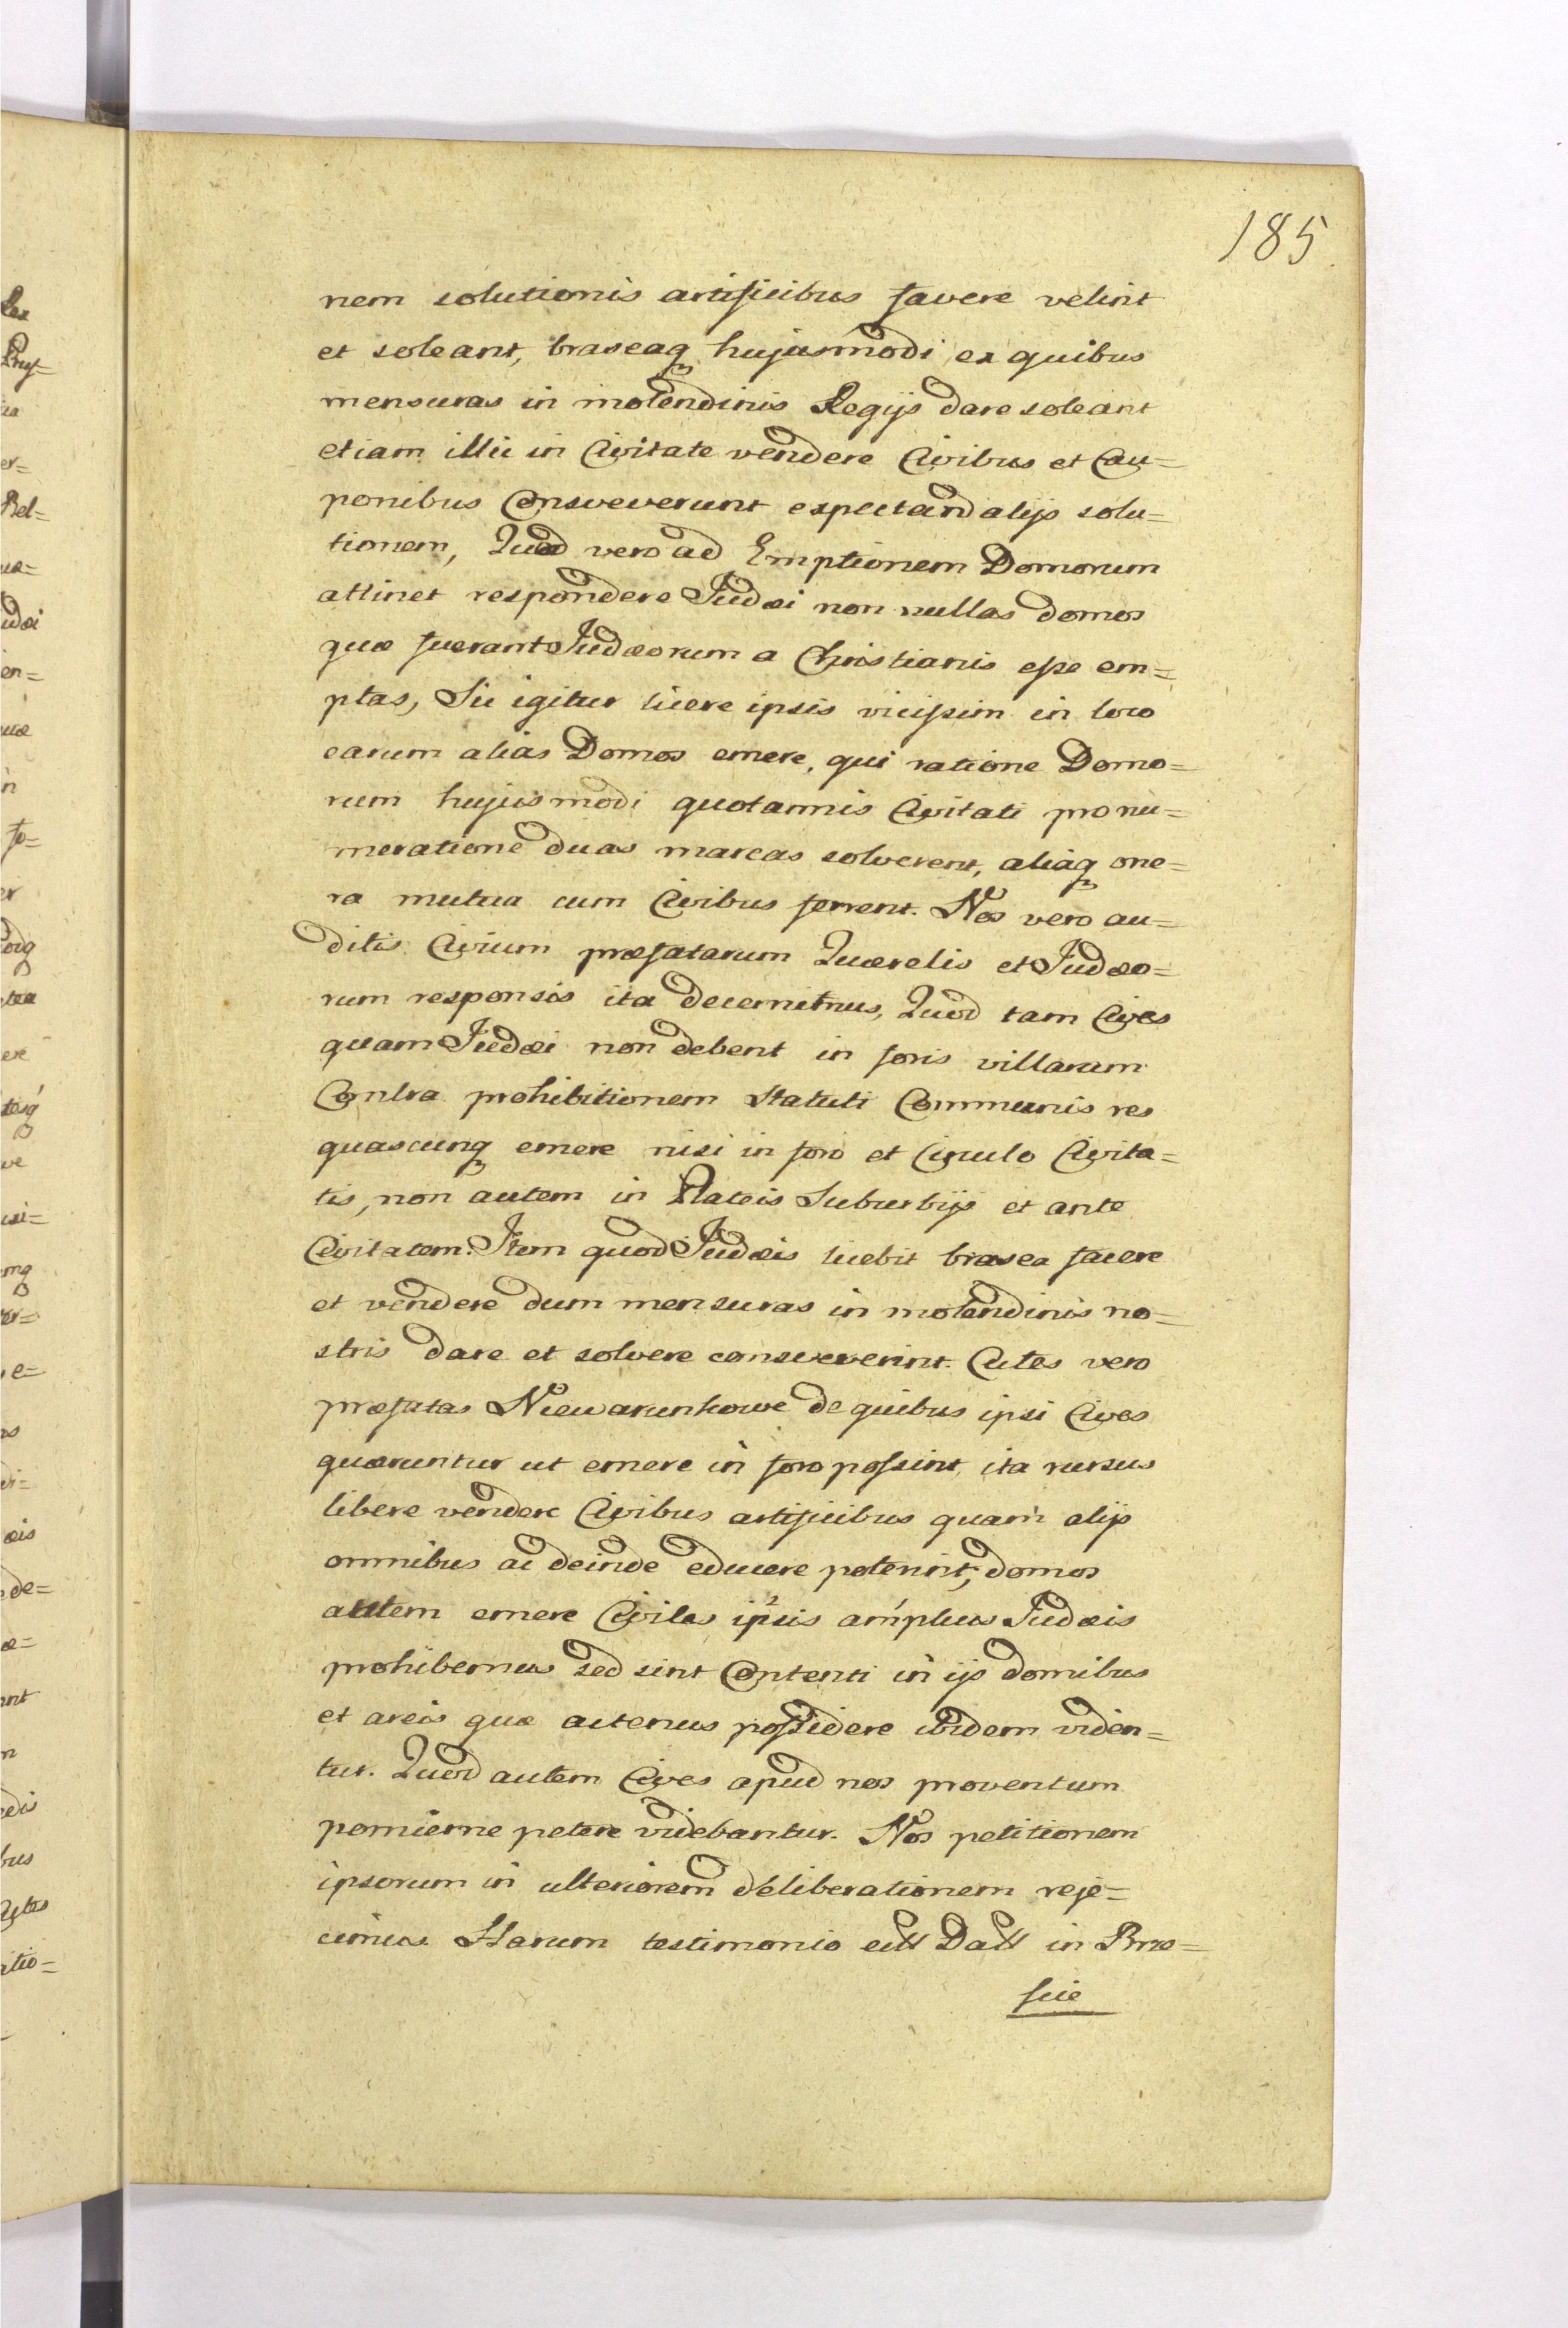 185
nem solutionis artificibus favere velint
et soleant, braseaq hujusmodi ex quibus
mensuras in molendinis Regijs dare soleant
etiam illic in Civitate vendere Civibus et Cau=
ponibus Consveverunt expectand alijs solu=
tionem, Quod vero ad Emptionem Domorum
attinet respondere Judæi non nullas domos
quæ fuerant Judæorum a Christianis esse em=
ptas, Sic igitur licere ipsis vicissim in loco
earum alias Domos emere, qui ratione Domo=
rum hujusmodi quotannis Civitati pro nu=
meratione duas marcas solverent, aliaq one=
ra mutua cum Civibus ferrent. Nos vero au=
ditis Civium præfatarum Quærelis et Judæo=
rum responsis ita decernimus, Quod tam Cives
quam Judæi non debent in foris villarum
Contra prohibitionem Statuti Communis res
quascunq emere nisi in foro et Circulo Civita=
tis, non autem in Plateis Suburbijs et ante
Civitatem. Item quod Judæis licebit brasea facere
et vendere dum mensuras in molendinis no=
stris dare et solvere consveverint. Cutes vero
præfatas Niewarunkowe de quibus ipsi Cives
quæruntur ut emere in foro possint, ita rursus
libere vendere Civibus artificibus quam alijs
omnibus ac deinde educere poterint, domos
autem emere Civiles ipsis amplius Judæis
prohibemus sed sint Contenti in ijs domibus
et areis quæ actenus possidere ibidem viden=
tur. Quod autem Cives apud nos proventum
pomierne petere videbantur. Nos petitionem
ipsorum in ulteriorem deliberationem reje=
cimus Harum testimonio ect Datt in Brze=
scie